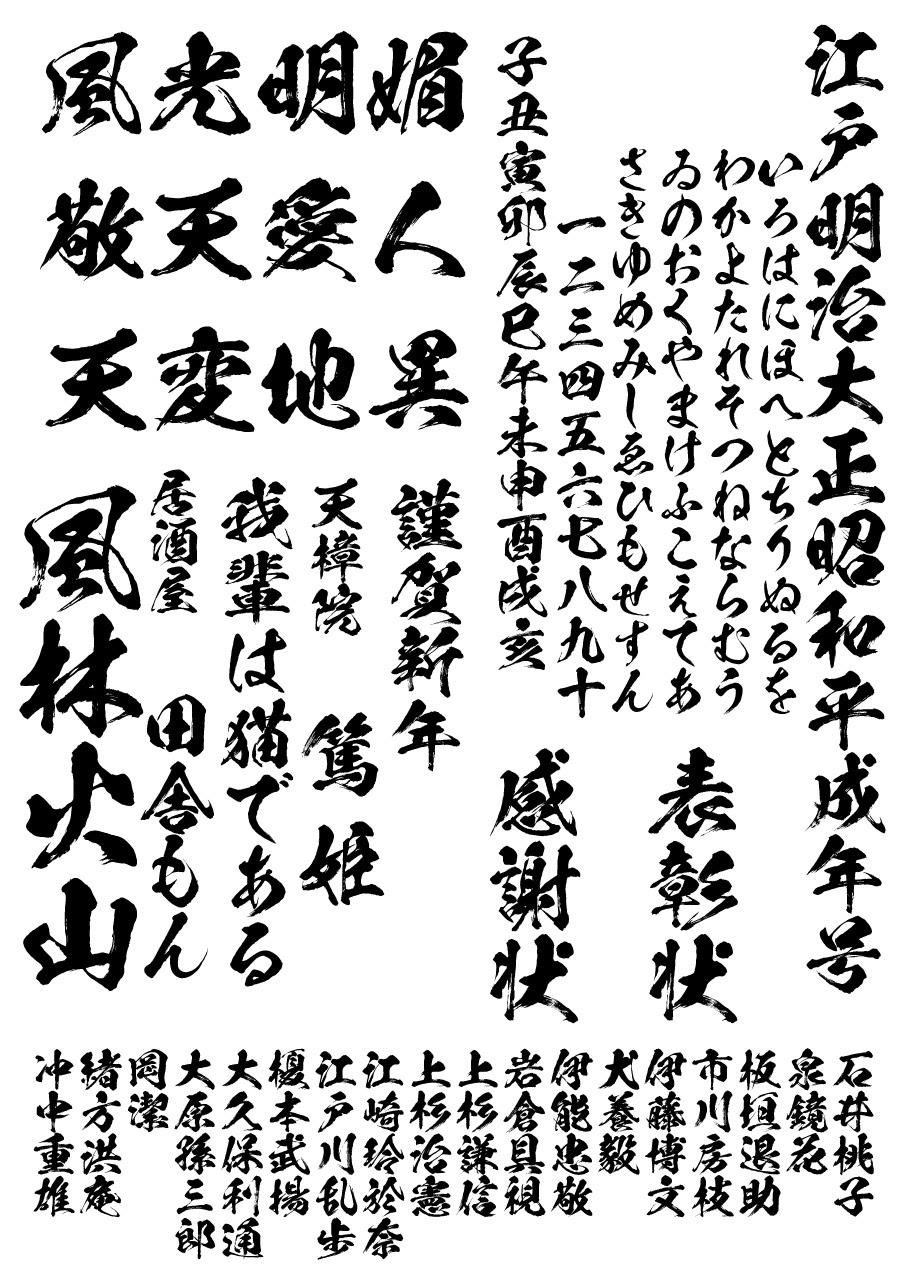 江戸明治大正昭和平成年号
いろはにほへとちりぬるを
わかよたれそつねならむう
ゐのおくやまけふこえてあ
さきゆめみしゑひもせすん
一二三四五六七八九十
子丑寅卯辰巳午未申酉戌亥
表彰状
感謝状
風光明媚
敬天愛人
天変地異
謹賀新年
天樟院
篤姫
我輩は猫である
居酒屋
田舎もん
風林火山
石井桃子
泉鏡花
板垣退助
市川房枝
伊藤博文
犬養毅
伊能忠敬
岩倉具視
上杉謙信
上杉治憲
江崎玲於奈
江戸川乱歩
榎本武揚
大久保利通
大原孫三郎
岡潔
緒方洪庵
沖中重雄